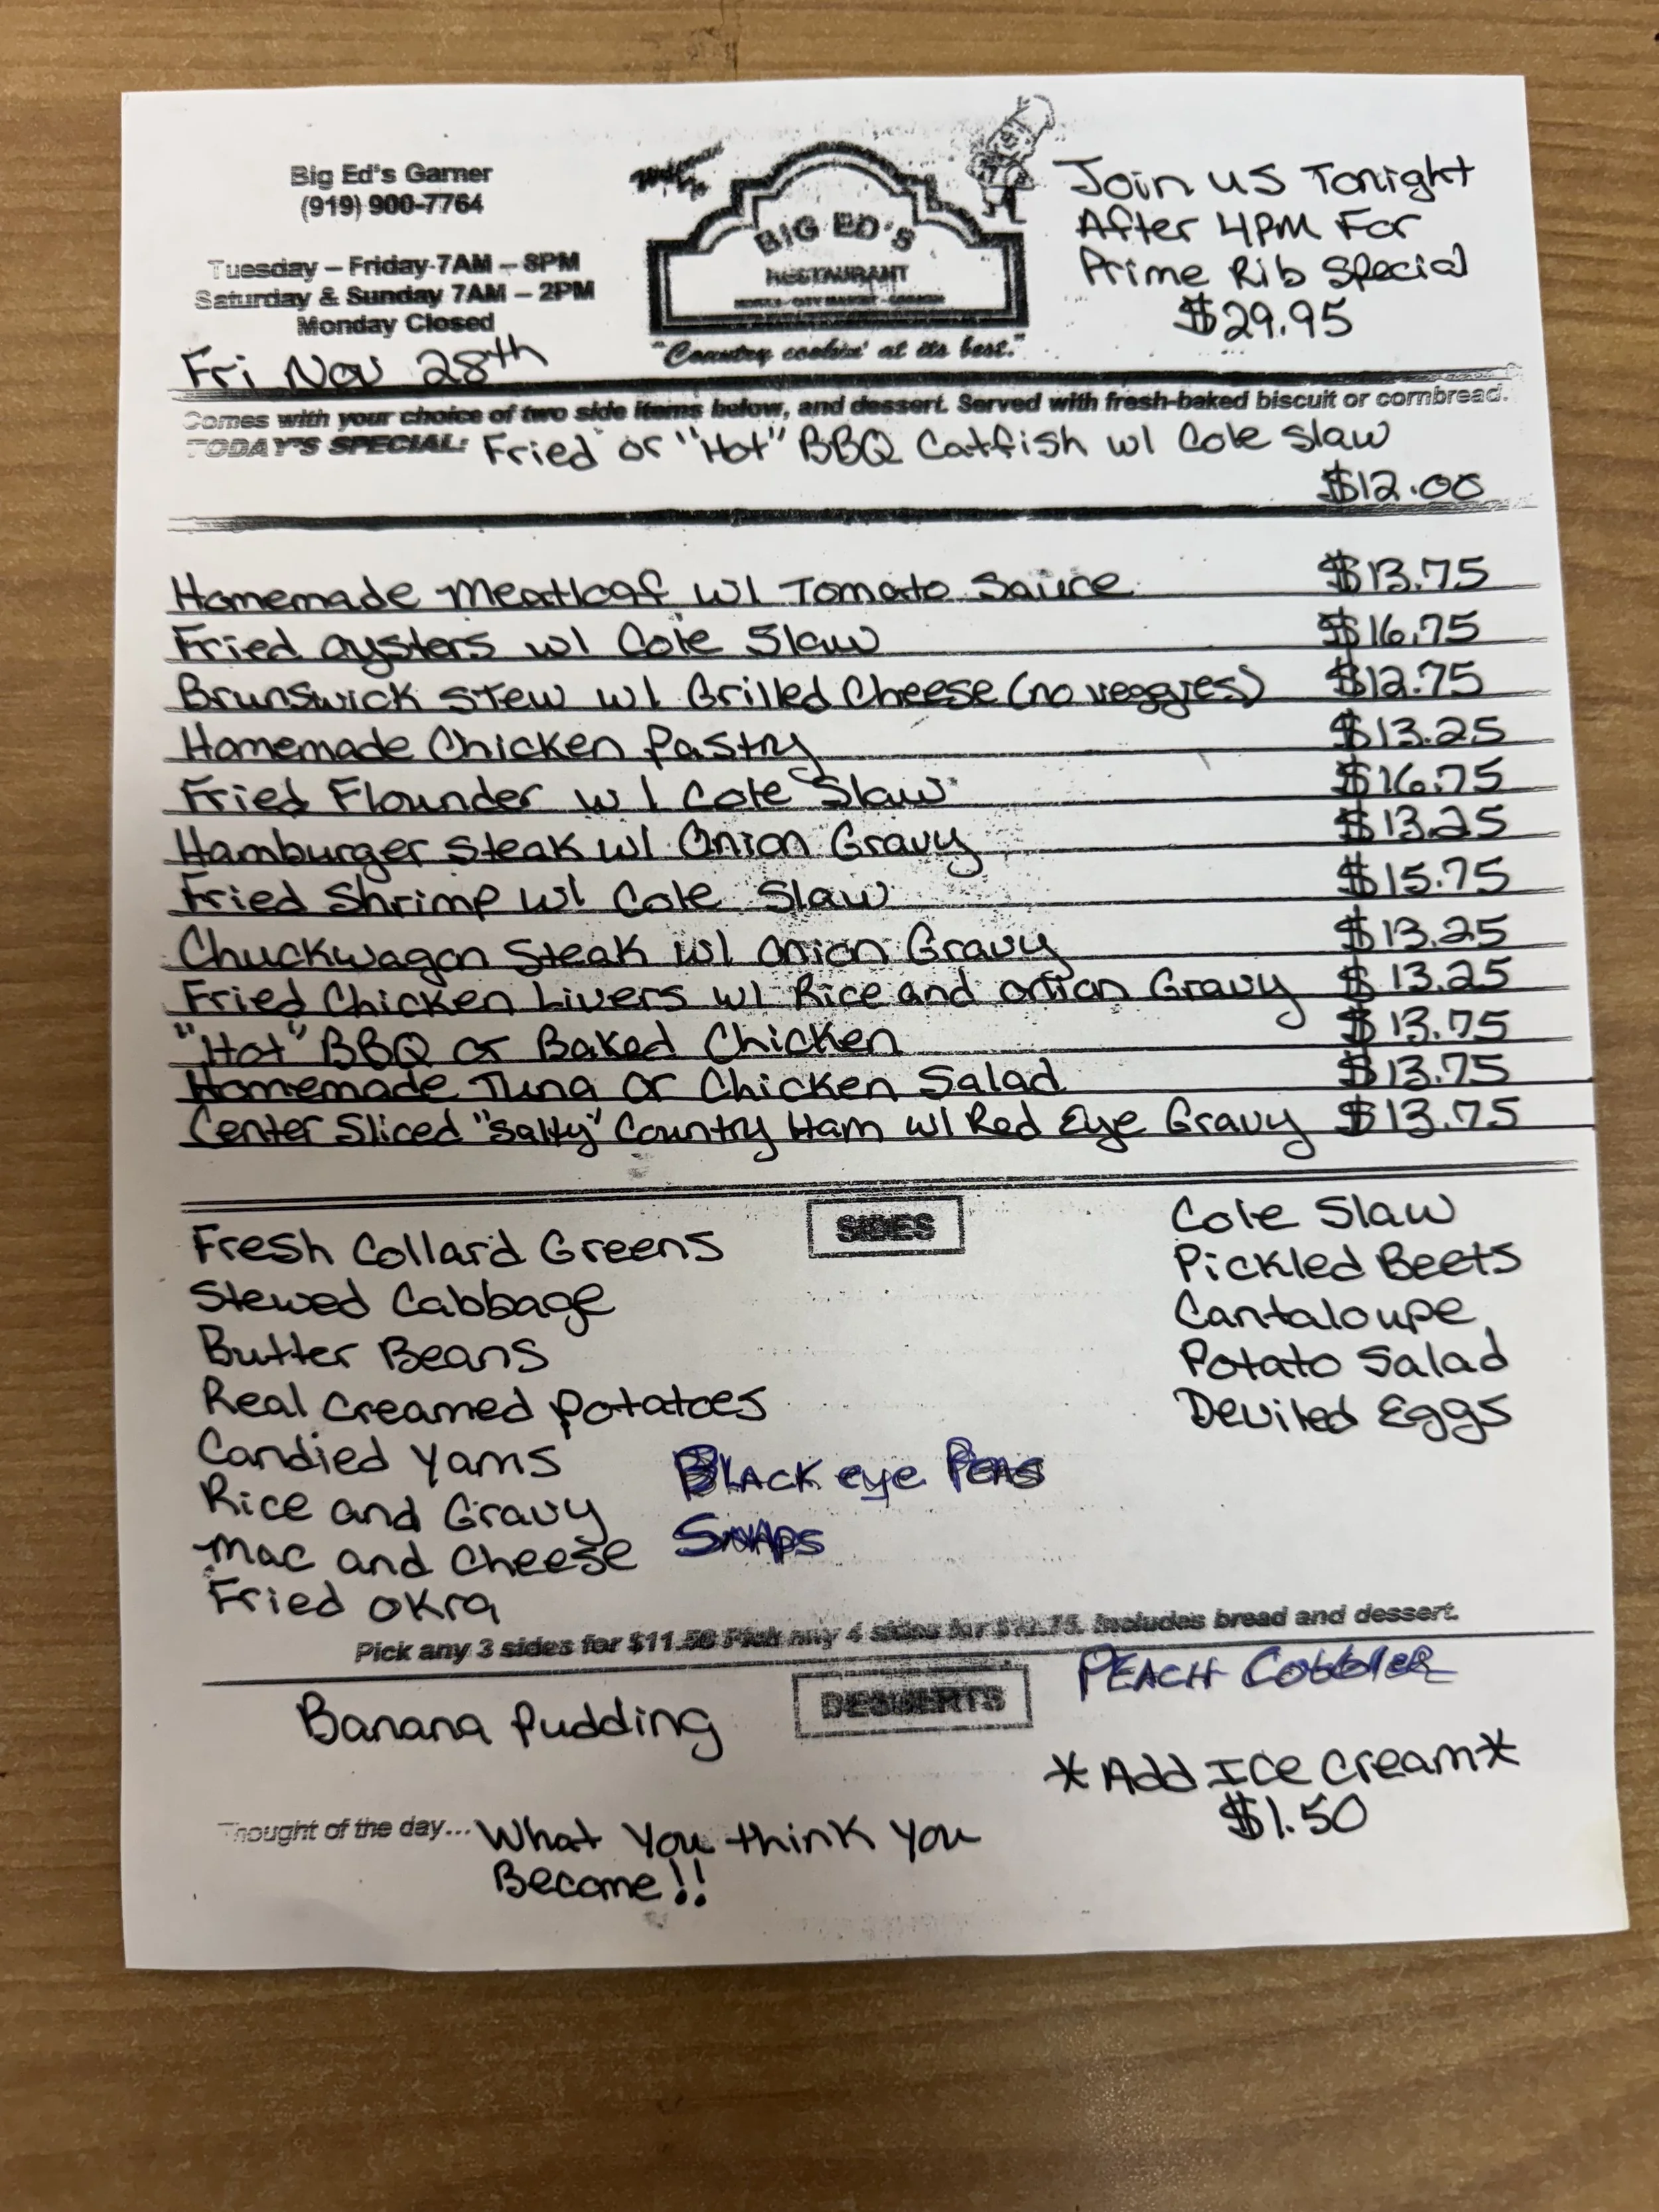 Big Ed's Garner
(919) 900-7764
Tuesday – Friday 7AM – 8PM
Saturday & Sunday 7AM – 2PM
Monday Closed
Fri Nov 28th
BIG ED'S
RESTAURANT
"Country cookin' at its best."
Join us Tonight
After 4PM For
Prime Rib Special
$29.95
Comes with your choice of two side items below, and dessert. Served with fresh-baked biscuit or cornbread.
TODAY'S SPECIAL: Fried or "Hot" BBQ Catfish w/ Cole Slaw
$12.00
Homemade Meatloaf w/ Tomato Sauce $13.75
Fried Oysters w/ Cole Slaw $16.75
Brunswick Stew w/ Grilled Cheese (no veggies) $12.75
Homemade Chicken Pastry $13.25
Fried Flounder w/ Cole Slaw $16.75
Hamburger Steak w/ Onion Gravy $13.25
Fried Shrimp w/ Cole Slaw $15.75
Chuckwagon Steak w/ Onion Gravy $13.25
Fried Chicken Livers w/ Rice and Onion Gravy $13.25
"Hot" BBQ or Baked Chicken $13.75
Homemade Tuna or Chicken Salad $13.75
Center Sliced "Salty" Country Ham w/ Red Eye Gravy $13.75
SIDES
Fresh Collard Greens
Stewed Cabbage
Butter Beans
Real Creamed Potatoes
Candied Yams
Rice and Gravy
Mac and Cheese
Fried Okra
Black eye Peas
Snaps
Cole Slaw
Pickled Beets
Cantaloupe
Potato Salad
Deviled Eggs
Pick any 3 sides for $11.50 Pick any 4 sides for Includes bread and dessert.
DESSERTS
Banana Pudding
Peach Cobbler
*Add Ice Cream*
$1.50
Thought of the day... What You think You
Become!!